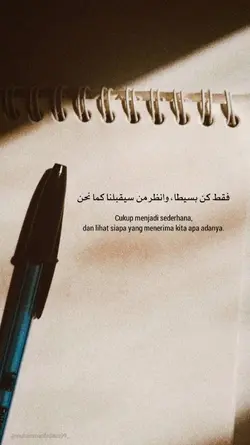 فقط كن بسيطا، وانظر من سيقبلنا كما نحن
Cukup menjadi sederhana,
dan lihat siapa yang menerima kita apa adanya.